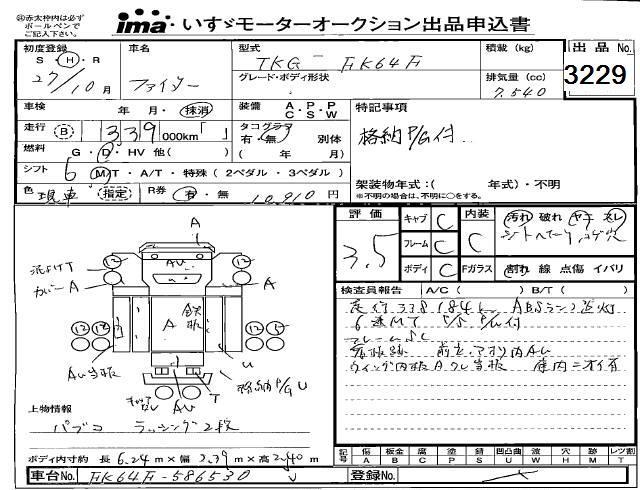 ㊟赤太枠内は必ず
ボールペンで
ご記入ください。
ima いすゞモーターオークション出品申込書
初度登録
S・H・R
27/10月
車名
ファイター
型式
TKG-FK64F
グレード・ボディ形状
積載(kg)
排気量(cc)
7.540
出品No.
3229
車検
年 月・抹消
装備
A・P・P
C・S・W
走行
B
339
000km「 」
タコグラフ
有・無 別体
( 年 月)
燃料
G・D・HV 他( )
シフト
6
M/T・A/T・特殊(2ペダル・3ペダル)
色
現車
指定
R券
有・無
10,910円
特記事項
格納P/G付
架装物年式:( 年式)・不明
※不明の場合は、不明に○をする。
評価
3.5
キャブ C
フレーム C
ボディ C
内装
C
Fガラス
汚れ 破れ ヤキ スレ
シートヘタリ、コゲ穴
割れ 線 点傷 イバリ
検査員報告 A/C( ) B/T( )
走行338184km ABSランプ点灯
6速MT P/S P/W付
フレームSC
前立、アオリ内AU
ウイング内板Aウレ当板 庫内ニオイ有
A
12
12
AU
カバーA
A
A
鉄板
12
12
12
5
AU当板
U
格納P/G U
T
AU
上物情報
パブコ ラッシング2段
ボディ内寸約 長6.24m×幅2.39m×高2.40m
記号
傷 A
板金 B
腐 C
補 P
塗 C
錆 S
凹凸曲 U
波 W
穴 H
跡 M
レツ割 T
車台No.
FK64F-586530
登録No.